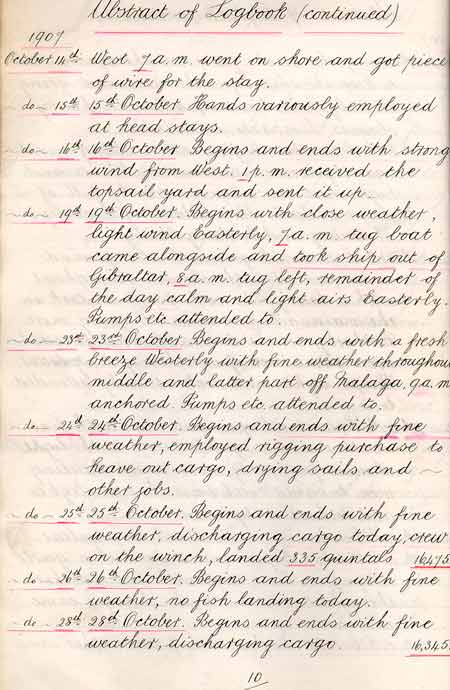 Abstract of Logbook (continued)
1907
October 14th West 7 a.m. went on shore and got piece
of wire for the stay.
~ do ~ 15th 15th October Hands variously employed
at head stays.
~ do ~ 16th 16th October Begins and ends with strong
wind from West. 1 p.m. received the
topsail yard and sent it up.
~ do ~ 19th 19th October. Begins with close weather,
light wind Easterly, 7 a.m. tug boat
came alongside and took ship out of
Gibraltar, 8 a.m. tug left, remainder of
the day calm and light airs Easterly.
Pumps etc. attended to.
~ do ~ 23rd 23rd October. Begins and ends with a fresh
breeze Westerly with fine weather throughout
middle and latter part off Malaga, 9 a.m.
anchored. Pumps etc. attended to.
~ do ~ 24th 24th October. Begins and ends with fine
weather, employed rigging purchase to
heave out cargo, drying sails and ~
other jobs.
~ do ~ 25th 25th October. Begins and ends with fine
weather, discharging cargo today, crew
on the winch, landed 335 quintals 16,475
~ do ~ 26th 26th October. Begins and ends with fine
weather, no fish landing today.
~ do ~ 28th 28th October. Begins and ends with fine
weather, discharging cargo. 16,345
10